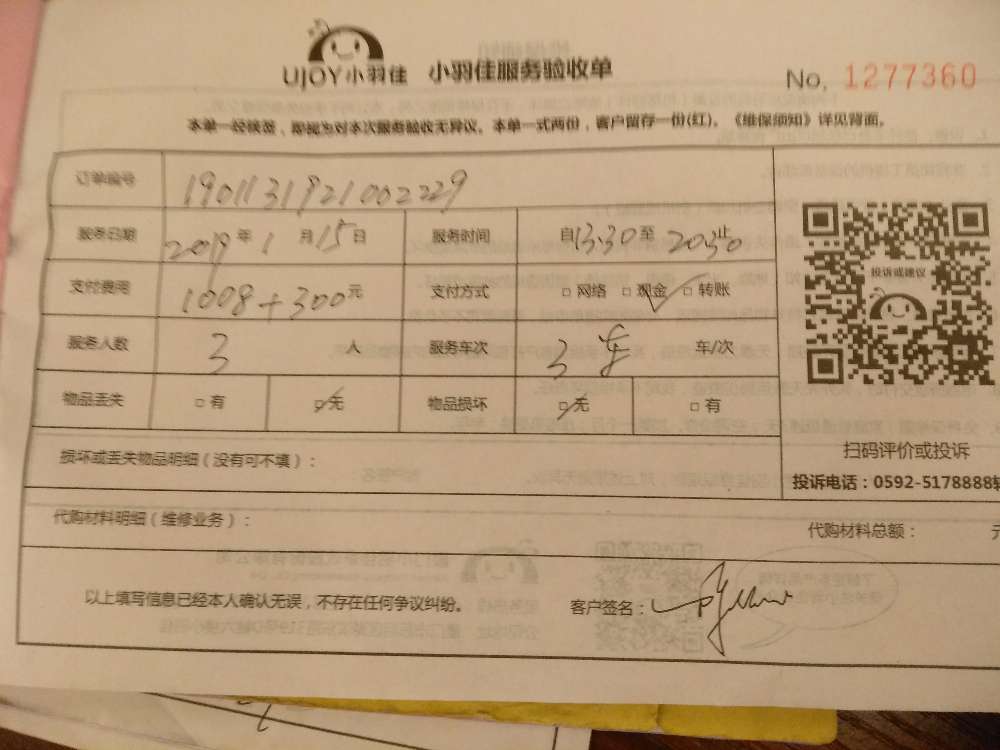 UJOY小羽佳 小羽佳服务验收单 No. 1277360
本单一经签署，即视为对本次服务验收无异议。本单一式两份，客户留存一份(红)。《维保须知》详见背面。
订单编号 1901131921002229
服务日期 2019年1月15日 服务时间 自13:30至2030止
支付费用 1008+300元 支付方式 □网络 □现金✓ □转账
投诉或建议
服务人数 3人 服务车次 3车 车/次
物品丢失 □有 ☑无 物品损坏 ☑无 □有
扫码评价或投诉
损坏或丢失物品明细（没有可不填）：
投诉电话：0592-5178888转
代购材料明细（维修业务）： 代购材料总额： 元
以上填写信息已经本人确认无误，不存在任何争议纠纷。 客户签名：